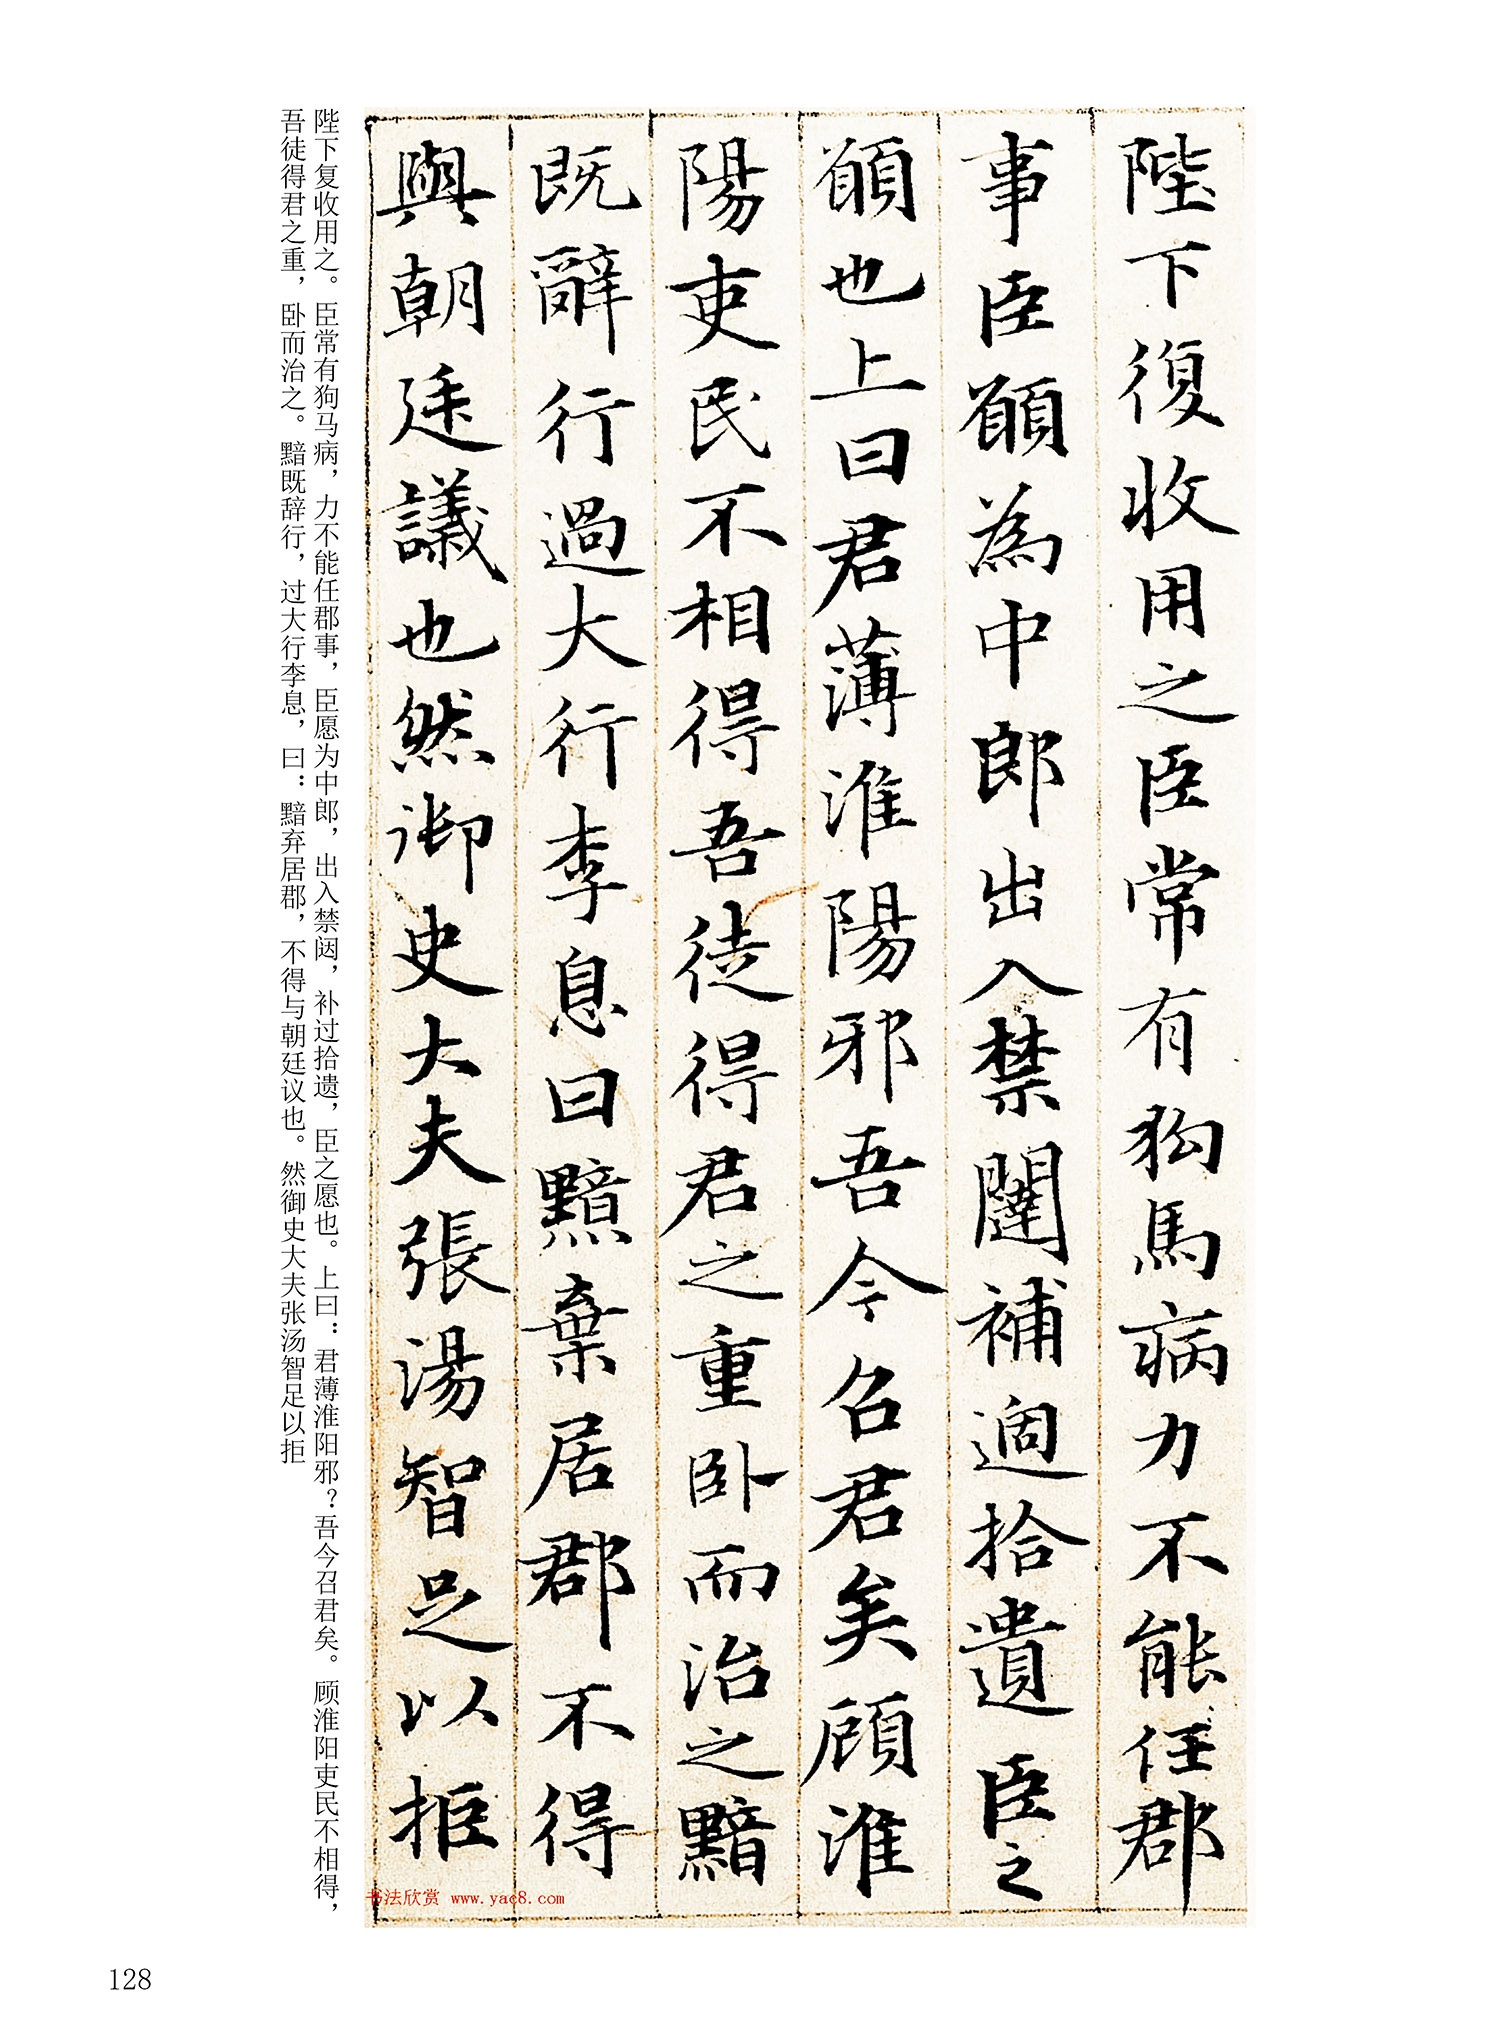 陛下復收用之臣常有狗馬病力不能任郡
事臣願為中郎出入禁闥補過拾遺臣之
願也上曰君薄淮陽邪吾今召君矣顧淮
陽吏民不相得吾徒得君之重卧而治之黯
既辭行過大行李息曰黯棄居郡不得
與朝廷議也然御史大夫張湯智足以拒
陛下复收用之。臣常有狗马病，力不能任郡事，臣愿为中郎，出入禁闼，补过拾遗，臣之愿也。上曰：君薄淮阳邪？吾今召君矣。顾淮阳吏民不相得，
吾徒得君之重，卧而治之。黯既辞行，过大行李息，曰：黯弃居郡，不得与朝廷议也。然御史大夫张汤智足以拒
书法欣赏 www.yac8.com
128